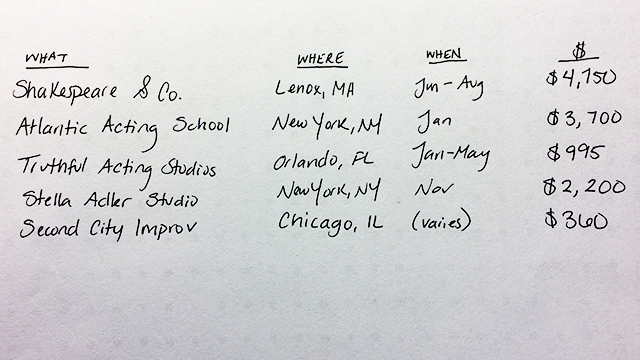 WHAT WHERE WHEN $
Shakespeare & Co. Lenox, MA Jun-Aug $4,750
Atlantic Acting School New York, NY Jan $3,700
Truthful Acting Studios Orlando, FL Jan-May $995
Stella Adler Studio New York, NY Nov $2,200
Second City Improv Chicago, IL (varies) $360